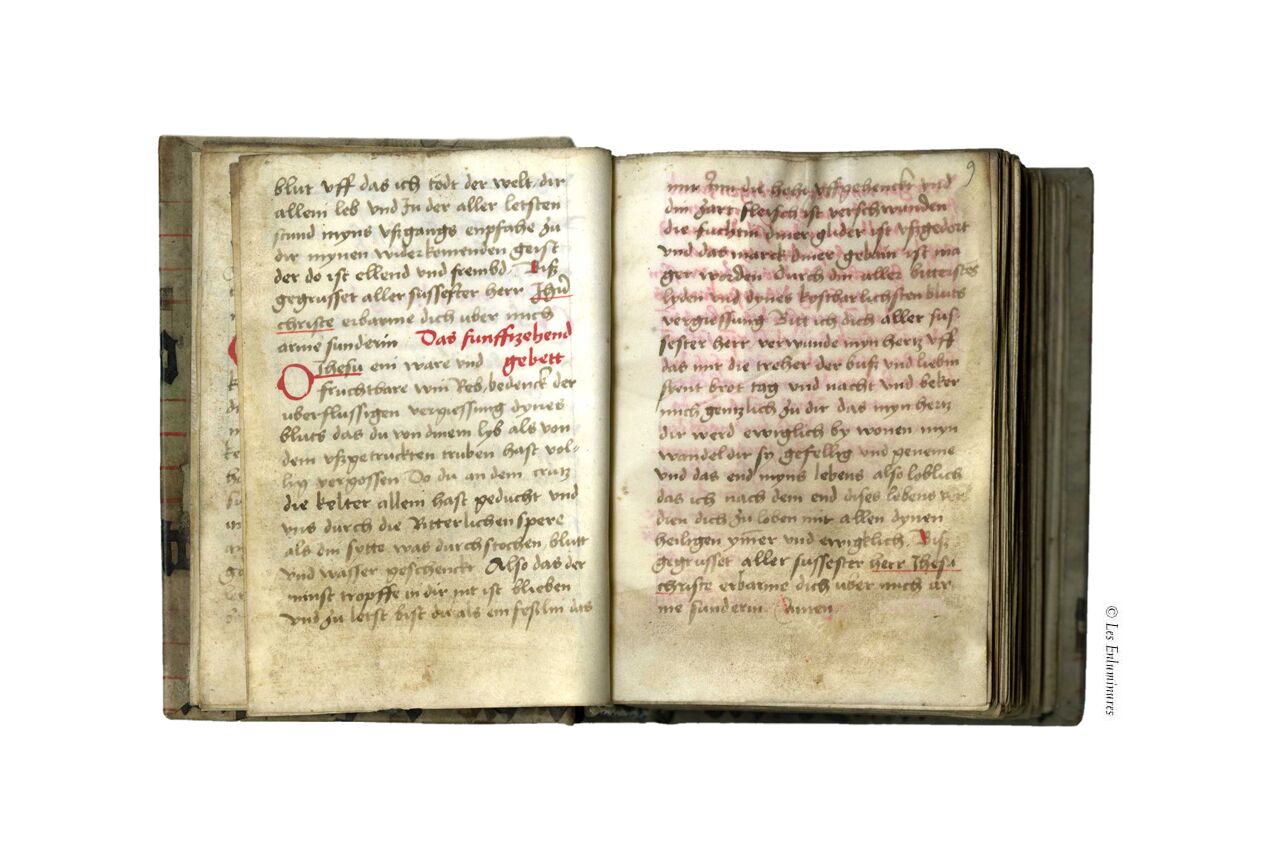 blut vff das ich todt der welt dir
allein leb vnd In der aller letsten
stund myns vßgangs enpfahe zu
dir mynen widerkomenden geist
der do ist ellend vnd frembd Biß
gegrusset aller sussester herr Ihũ
christe erbarme dich uber mich
arme sunderin Das funffzehend
gebett
O Ihesu ein ware vnd
fruchtbare win Reb bedenck der
uberflussigen vergiessung dynes
bluts das du von dinem lyb als von
dem vßgetruckten truben hast vol-
lig vergossen Do du an dem crutz
die kelter allein hast geducht vnd
vns durch die Ritterlichen spere
als din sytte was durchstochen blutt
vnd wasser geschenckt Also das der
minst tropffe in dir nit ist blieben
vnd zu letst bist du als ein das
9
die hohe vffgehenckt vnd
din zart fleisch ist verschwunden
die fuchtin diner glider ist vßgedort
vnd das marck diner gebain ist ma
ger worden Durch din aller bitterstes
lyden vnd dynes kostbarlichsten bluts
vergiessung Bitt ich dich aller sus-
sester herr verwunde myn hertz vff
das mir die treher der buß vnd liebin
syent brot tag vnd nacht vnd beker
mich gentzlich zu dir das myn hertz
dir werd ewiglich by wonen myn
wandel dir sy gefellig vnd geneme
vnd das end myns lebens also loblich
das ich nach dem end dises lebens
dien dich zu loben mit allen dynen
heiligen ym̃er vnd ewigklich. Biß
gegrusset aller sussester herr Ihesu
christe erbarme dich uber mich ar
me sunderin Amen
© Les Enluminures